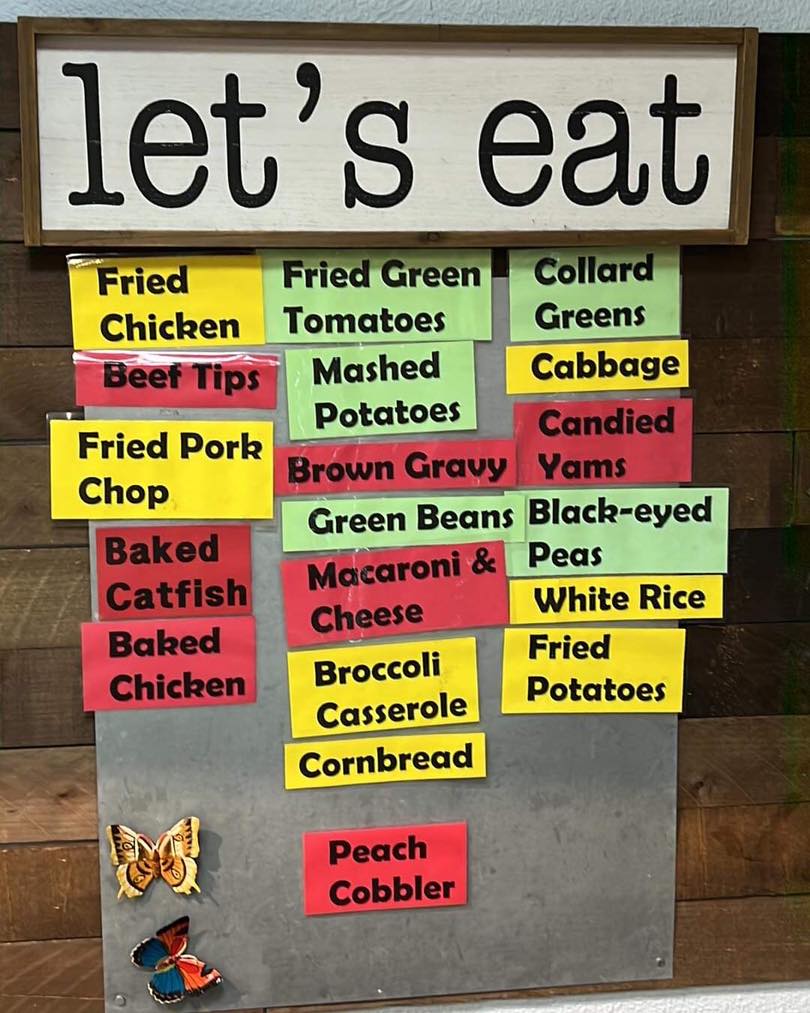 let's eat
Fried
Chicken
Beef Tips
Fried Pork
Chop
Baked
Catfish
Baked
Chicken
Fried Green
Tomatoes
Mashed
Potatoes
Brown Gravy
Green Beans
Macaroni &
Cheese
Broccoli
Casserole
Cornbread
Peach
Cobbler
Collard
Greens
Cabbage
Candied
Yams
Black-eyed
Peas
White Rice
Fried
Potatoes